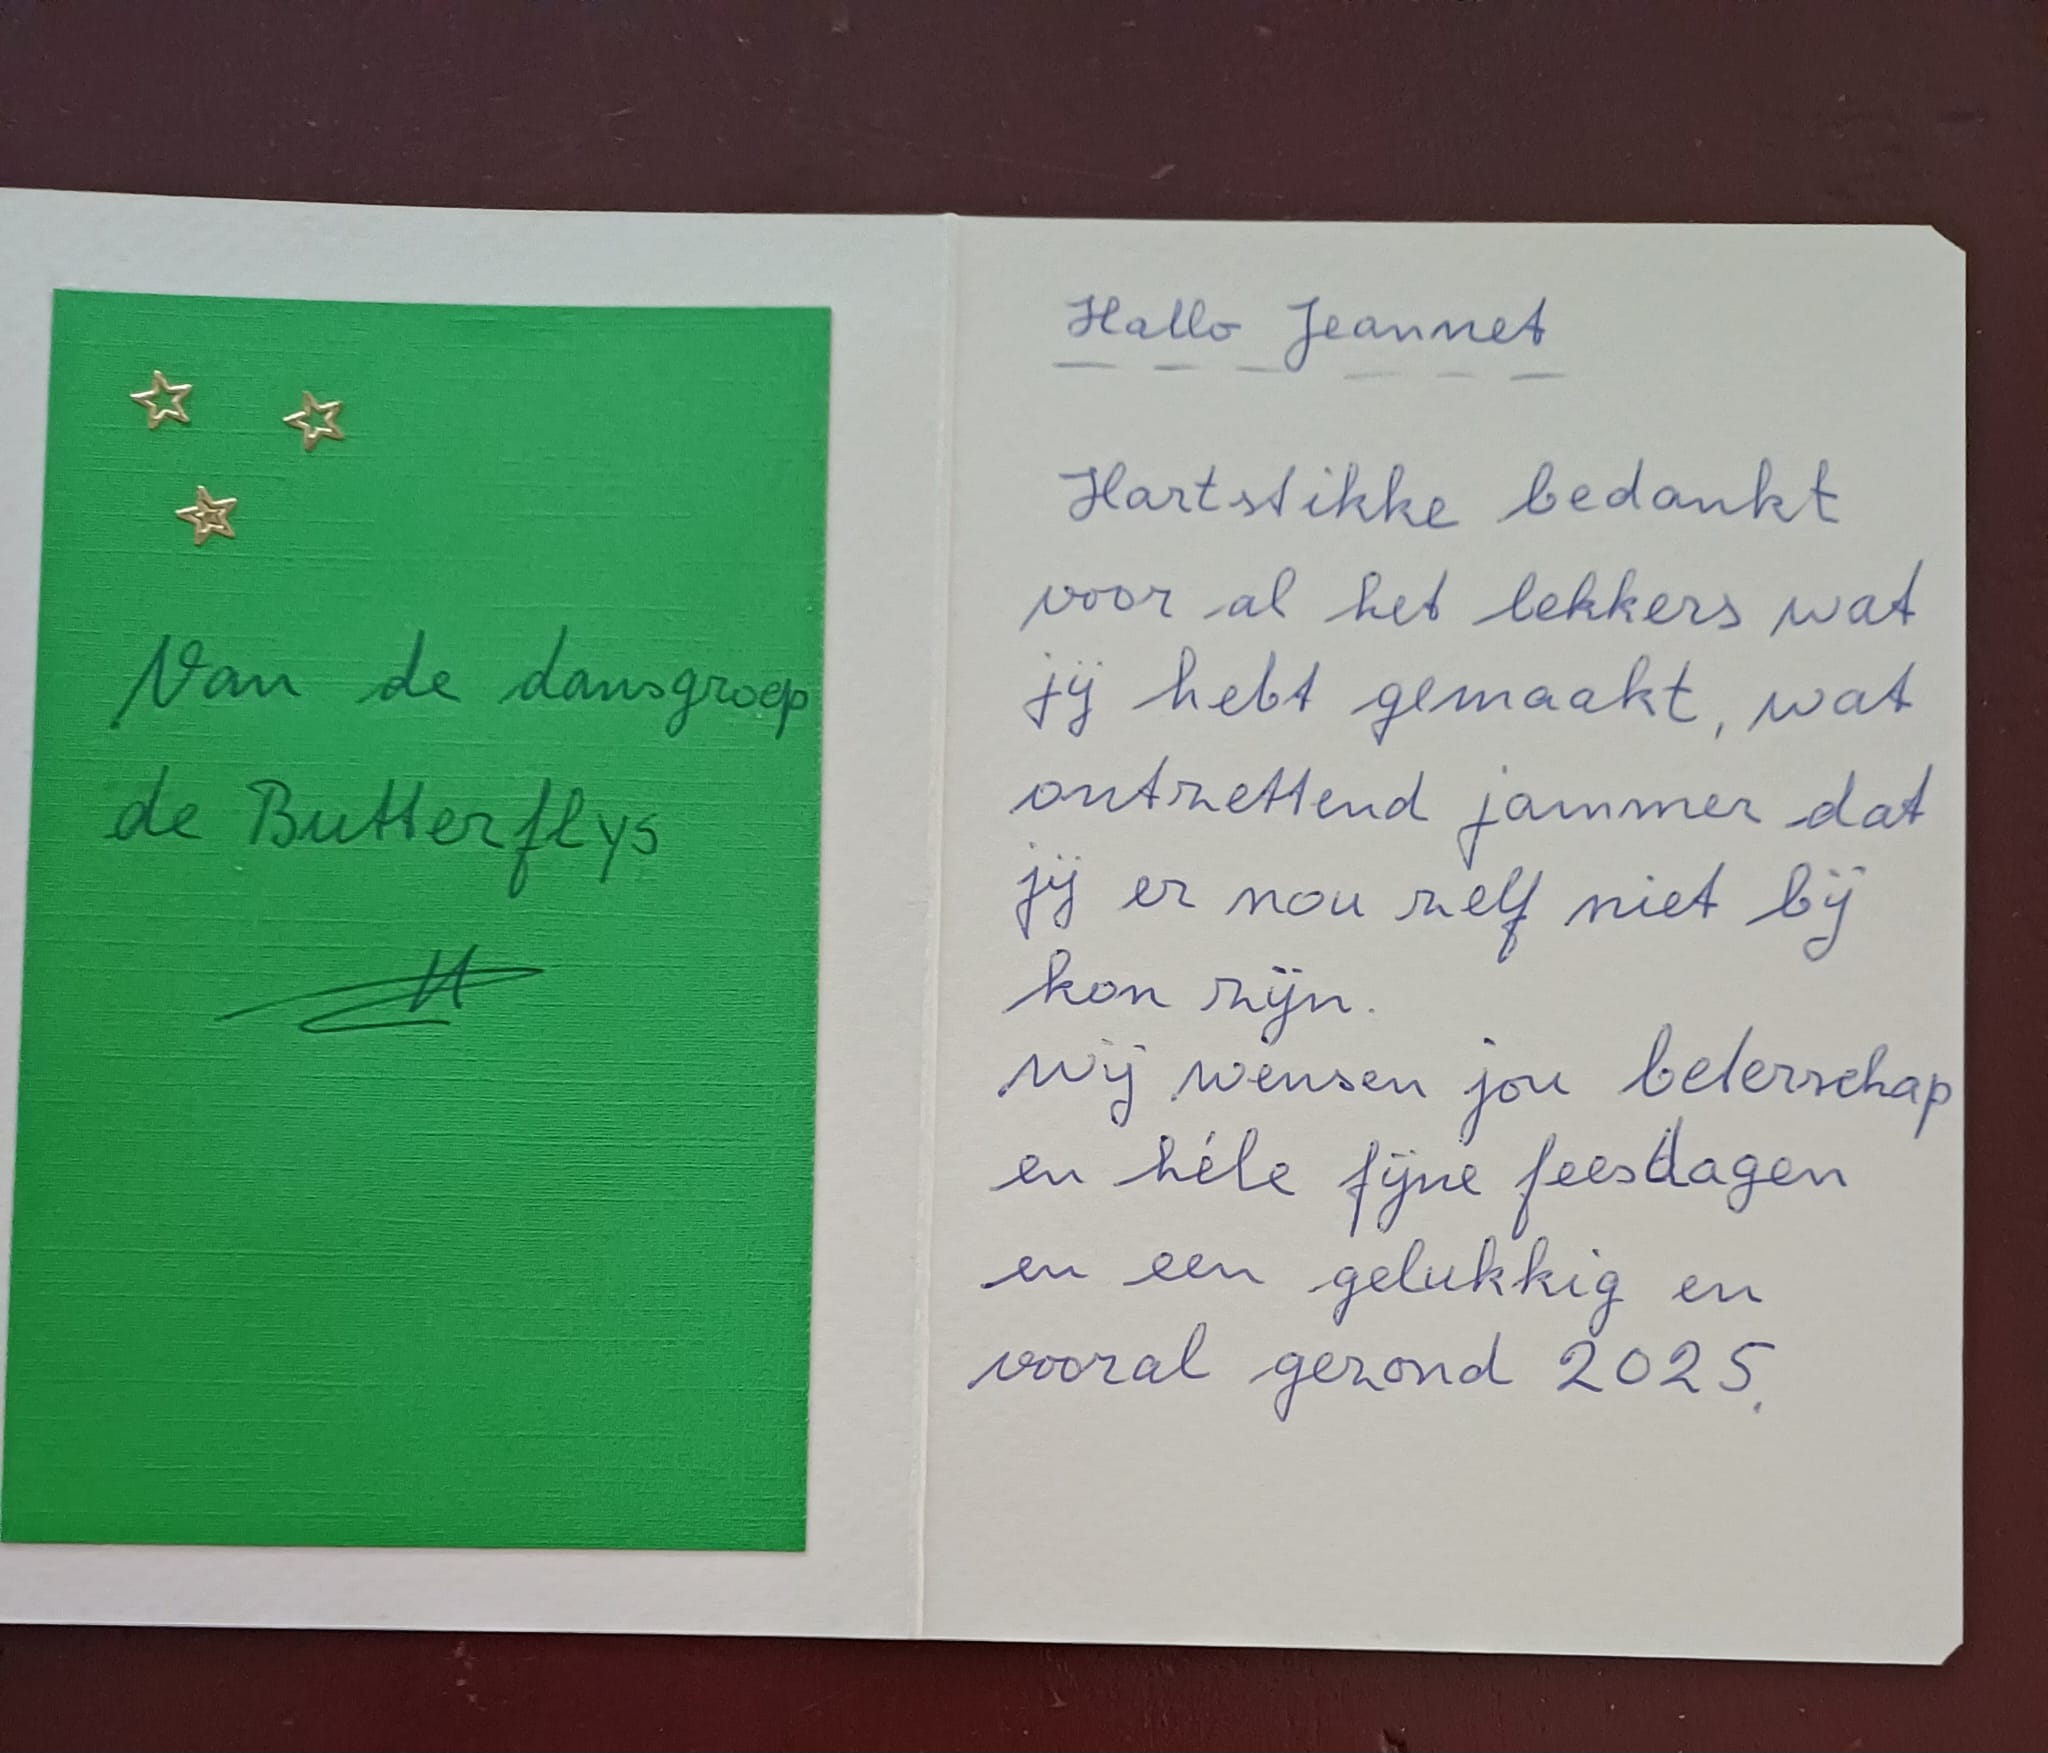 Van de dansgroep
de Butterflys
Hallo Jeannet
Hartstikke bedankt
voor al het lekkers wat
jij hebt gemaakt, wat
ontzettend jammer dat
jij er nou zelf niet bij
kon zijn.
wij wensen jou beterschap
en héle fijne feestdagen
en een gelukkig en
vooral gezond 2025.